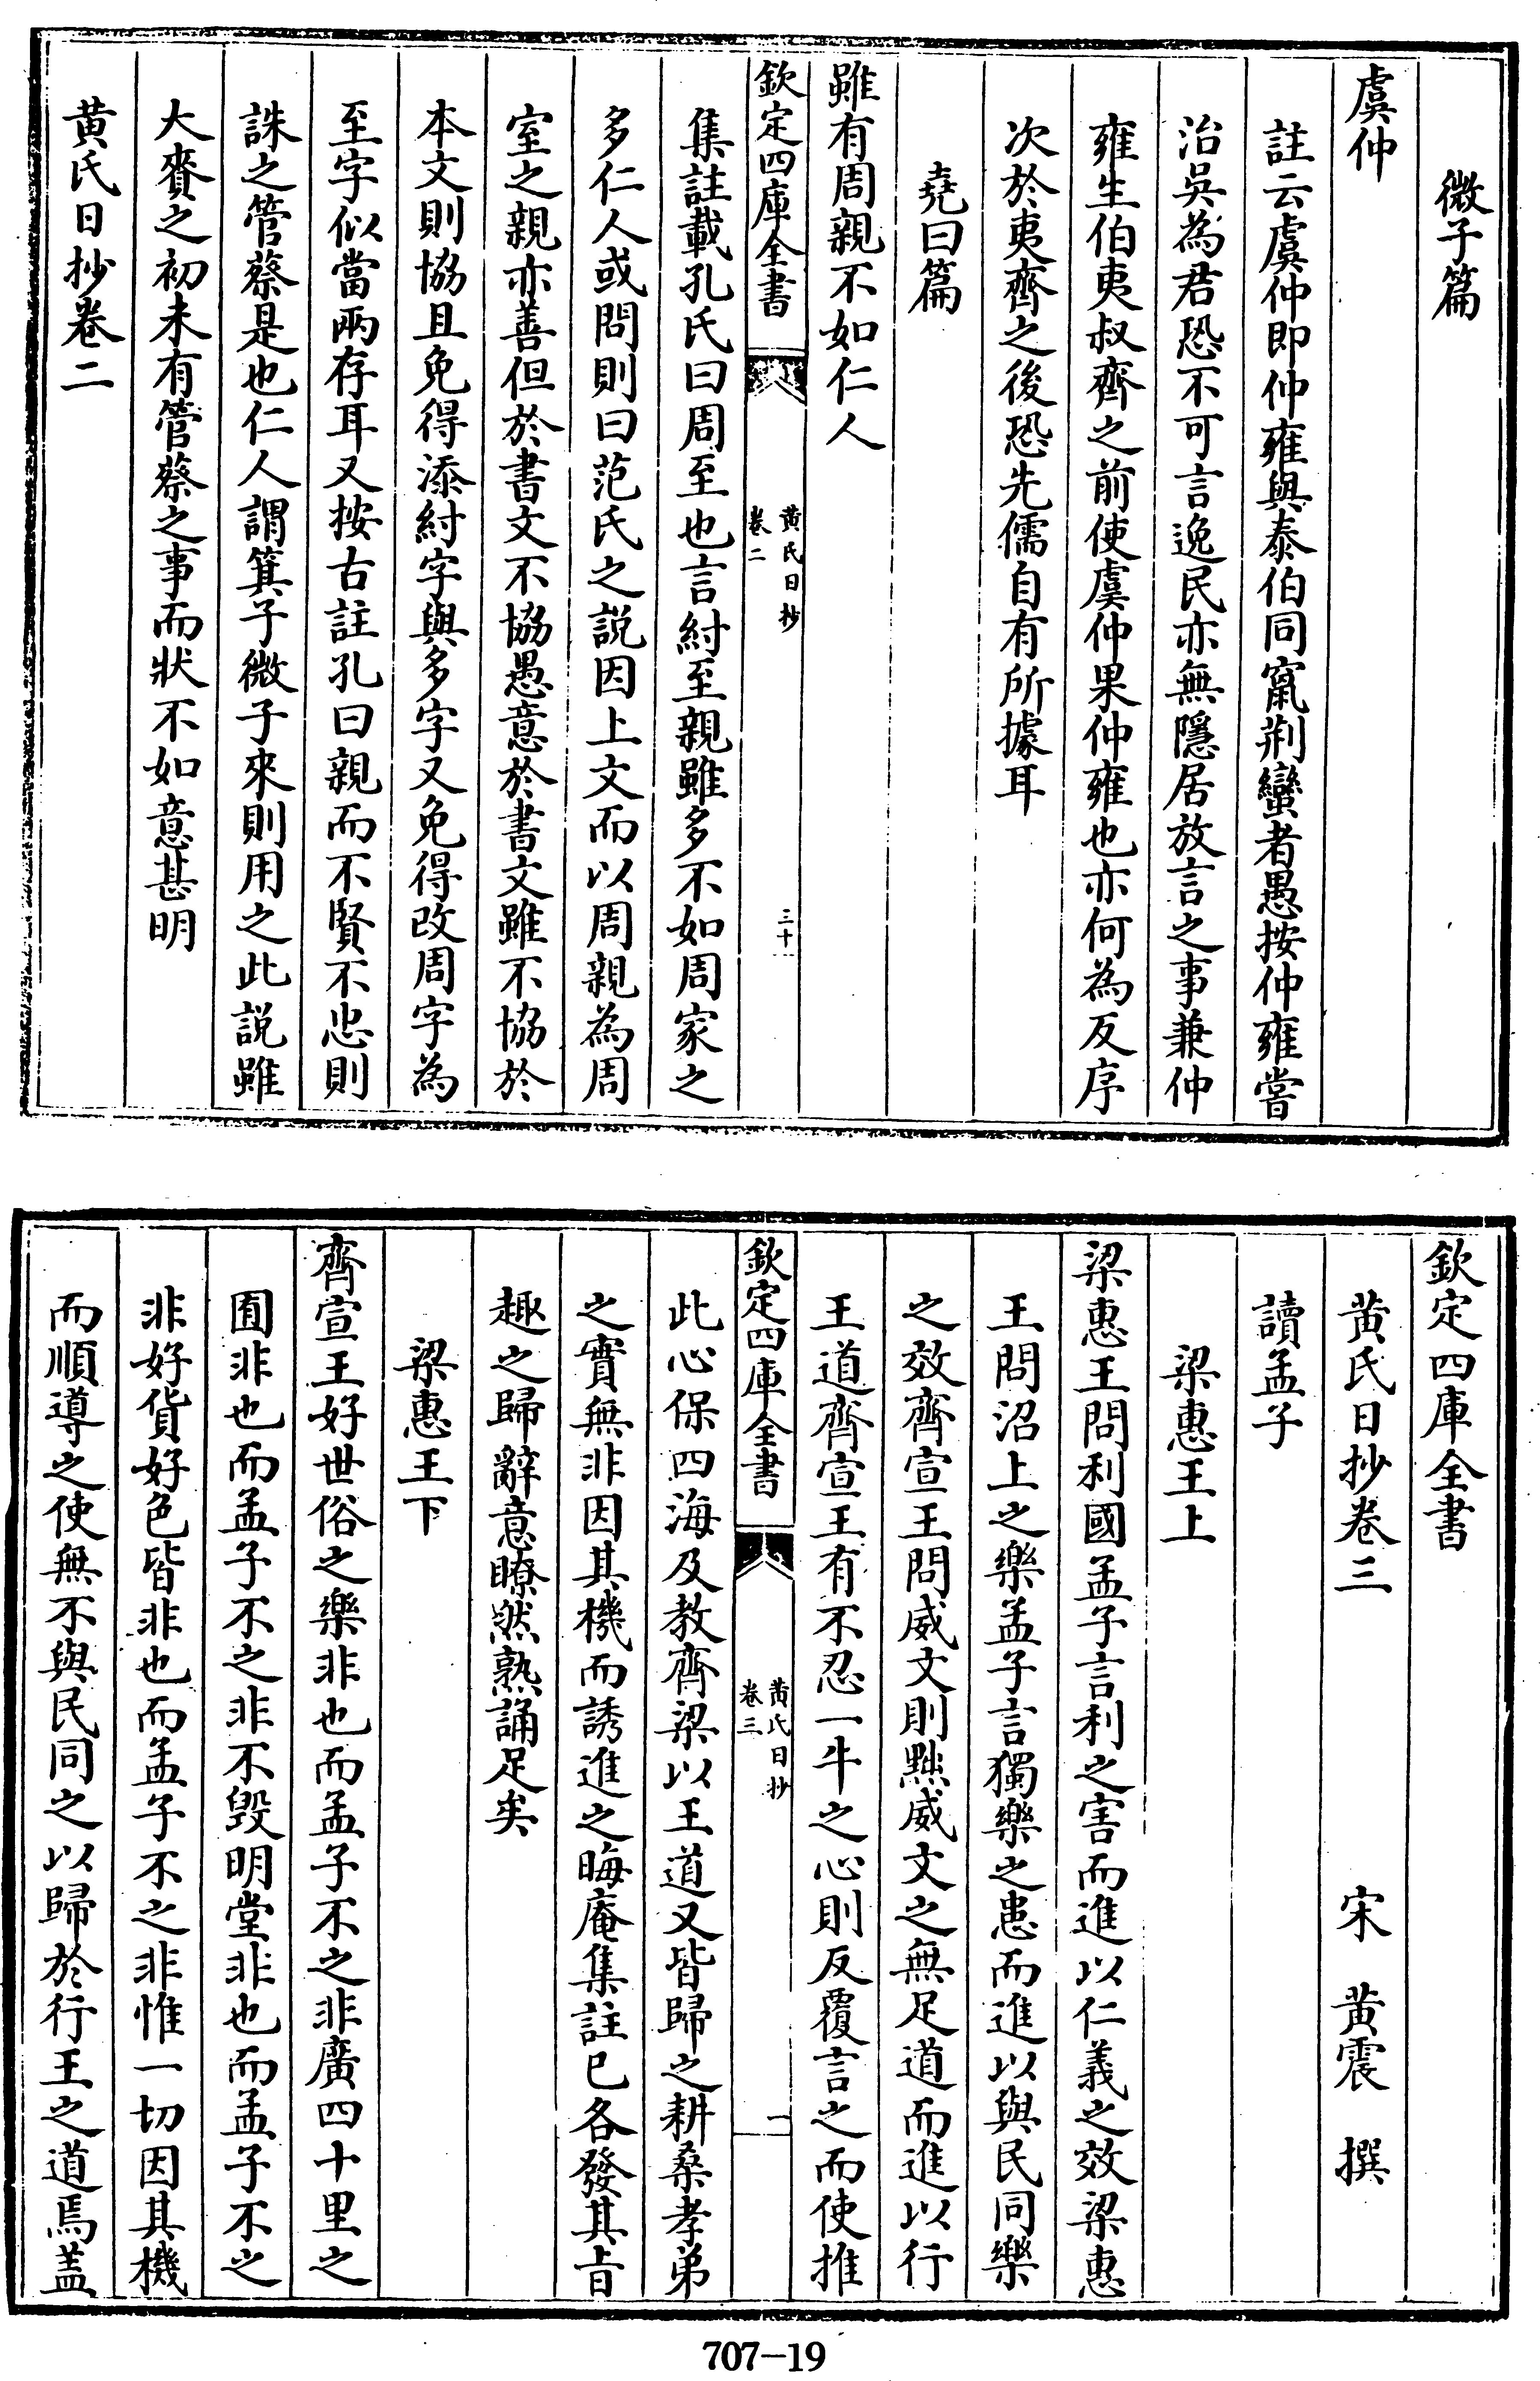 微子篇
虞仲
註云虞仲即仲雍與泰伯同竄荆蠻者愚按仲雍嘗
治吳為君恐不可言逸民亦無隱居放言之事兼仲
雍生伯夷叔齊之前使虞仲果仲雍也亦何為反序
次於夷齊之後恐先儒自有所據耳
堯曰篇
雖有周親不如仁人
欽定四庫全書
黄氏日抄
卷二
三十
集註載孔氏曰周至也言紂至親雖多不如周家之
多仁人或問則曰范氏之説因上文而以周親為周
室之親亦善但於書文不協愚意於書文雖不協於
本文則協且免得添紂字與多字又免得改周字為
至字似當兩存耳又按古註孔曰親而不賢不忠則
誅之管蔡是也仁人謂箕子微子來則用之此説雖
大賚之初未有管蔡之事而狀不如意甚明
黄氏日抄卷二
欽定四庫全書
黄氏日抄卷三
宋 黄震 撰
讀孟子
梁惠王上
梁惠王問利國孟子言利之害而進以仁義之效梁惠
王問沼上之樂孟子言獨樂之患而進以與民同樂
之效齊宣王問威文則黜威文之無足道而進以行
王道齊宣王有不忍一牛之心則反覆言之而使推
欽定四庫全書
黄氏日抄
卷三
一
此心保四海及教齊梁以王道又皆歸之耕桑孝弟
之實無非因其機而誘進之晦庵集註已各發其旨
趣之歸辭意瞭然熟誦足矣
梁惠王下
齊宣王好世俗之樂非也而孟子不之非廣四十里之
囿非也而孟子不之非不毁明堂非也而孟子不之
非好貨好色皆非也而孟子不之非惟一切因其機
而順導之使無不與民同之以歸於行王之道焉蓋
707-19